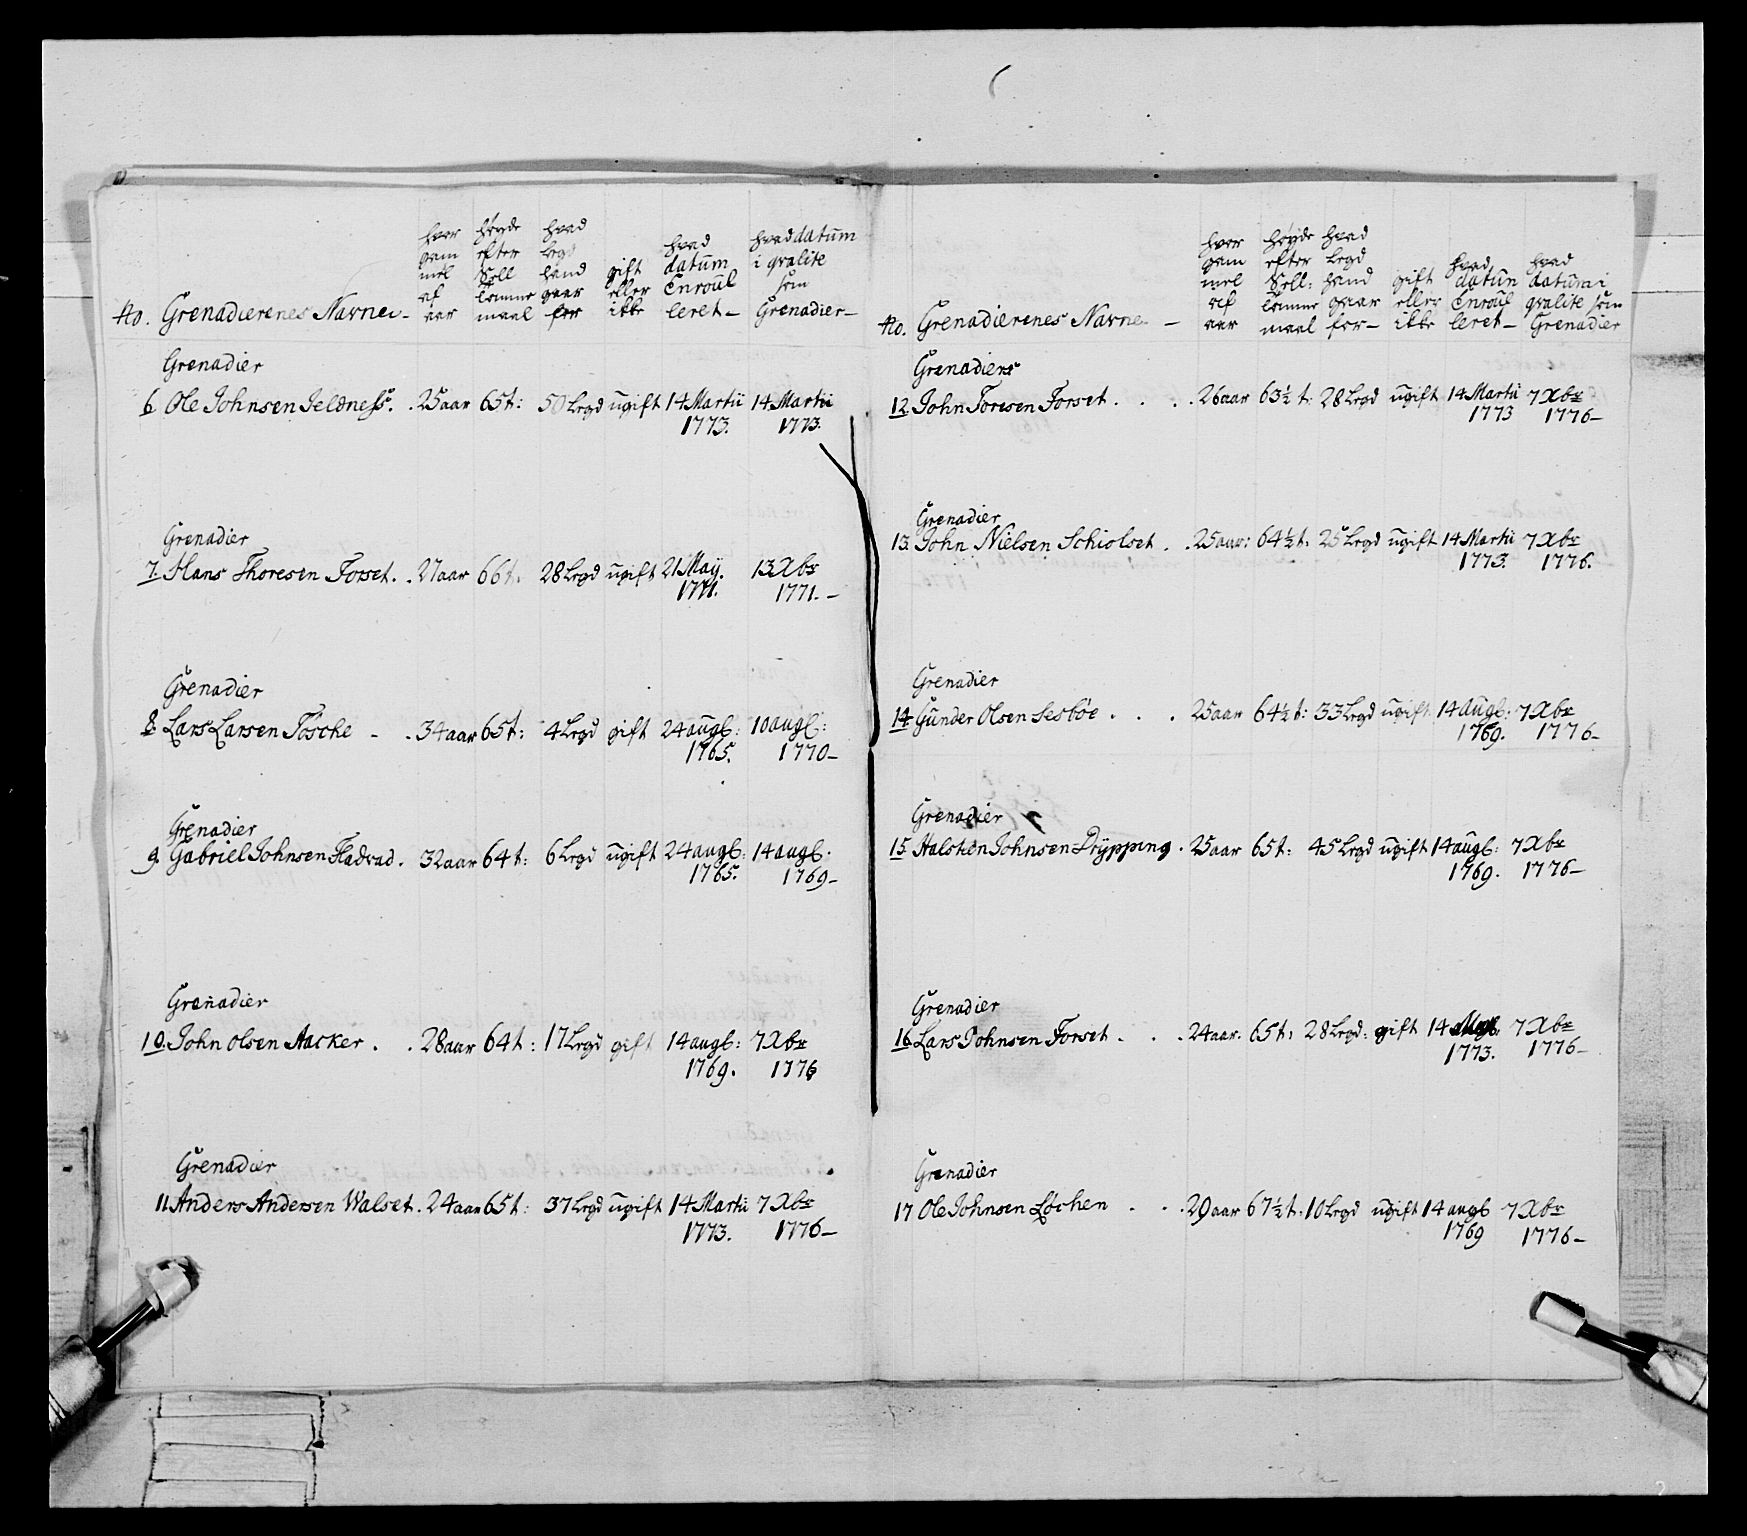 No. Grenadierenes Navne – hvor gam mel af aar høyde efter Soll tomme maal hvad Legd hand gaar for gift eller ikke hvad datum Enroul leret – hvad datum i qvalite som Grenadier –
Grenadier
6 Ole Johnsen Jeldness. . 25 aar 65 t: 50 Legd ugift 14 Martii 14 Martii
1773. 1773.
Grenadier
7. Hans Thoresen Forset. . 27 aar 66 t. 28 Legd ugift 21 May. 13 Xbr
1771. 1771. –
Grenadier
8. Lars Larsen Tösche – . 34 aar 65 t: 4 Legd gift 24 augl: 10 augl:
1765. 1770 –
Grenadier
9. Gabriel Johnsen Fladvad. 32 aar 64 t: 6 Legd ugift 24 augl: 14 augl.
1765. 1769 –
Grenadier
10. John olsen Aacker . . 28 aar 64 t: 17 Legd gift 14 augl: 7 Xbr
1769. 1776
Grenadier
11. Anders Andersen Walset. 24 aar 65 t: 37 Legd ugift 14 Martii 7 Xbr
1773. 1776 –
No. Grenadierenes Navne – hvor gam mel af aar høyde efter Soll: tomme maal hvad Legd hand gaar for – gift eller ikke hvad datum Enroul leret – hvad datum i qvalite som Grenadier
Grenadier
12. John Toresen Forset . . . 26 aar 63½ t: 28 Legd ugift 14 Martii 7 Xbr
1773 1776 –
Grenadier
13. John Nielsen Schiolset . . 25 aar: 64½ t. 25 Legd ugift 14 Martii 7 Xbr
1773. 1776.
Grenadier
14 Gunder Olsen Sesböe . . . 25 aar 64½ t: 33 Legd ugift 14 augl: 7 Xbr
1769. 1776 –
Grenadier
15 Halsten Johnsen Drypping . 25 aar 65 t: 45 Legd ugift 14 augl: 7 Xbr
1769. 1776 –
Grenadier
16 Lars Johnsen Forset . . . 24 aar. 65 t: 28 Legd: gift 14 7 Xbr
1773. 1776 –
Grenadier
17 Ole Johnsen Løchen . . . 29 aar 67½ t: 10 Legd ugift 14 augl 7 Xbr
1769 1776 –